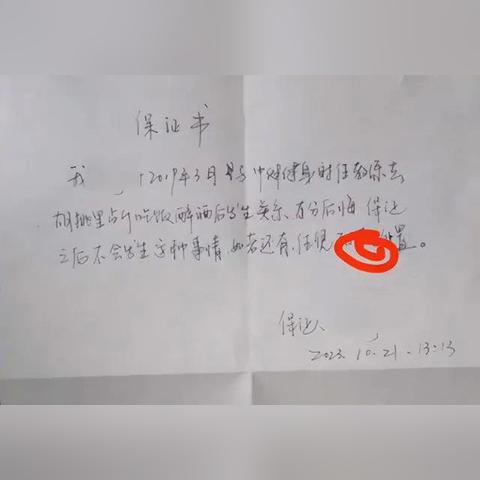 保证书
我 于2019年3月 健身时任教练去
胡桃里 吃饭醉酒后发生关系、万分后悔 保证
之后不会发生这种事情,如若还有,任凭 处置。
保证人、
2023.10.21.13:13